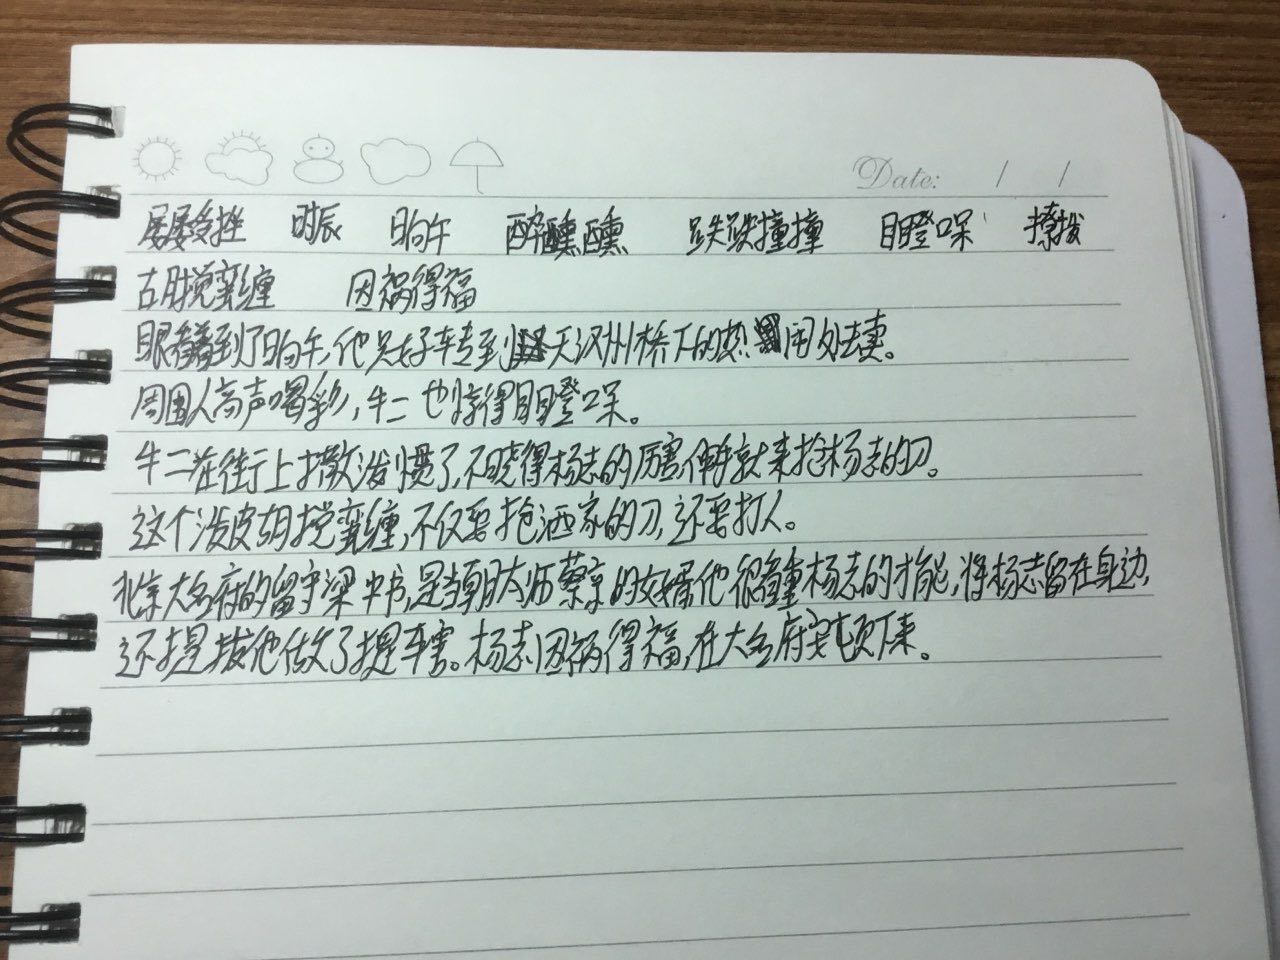 Date: / /
屡屡受挫 时辰 晌午 醉醺醺 跌跌撞撞 目瞪口呆 撩拨
胡搅蛮缠 因祸得福
眼看着到了晌午,他只好转到天汉州桥下的热闹处去卖。
周围人高声喝彩,牛二也惊得目瞪口呆。
牛二在街上撒泼惯了,不晓得杨志的厉害,伸手就来抢杨志的刀。
这个泼皮胡搅蛮缠,不仅要抢洒家的刀,还要打人。
北京大名府的留守梁中书,是当朝太师蔡京的女婿,他很看重杨志的才能,将杨志留在身边,
还提拔他做了提辖。杨志因祸得福,在大名府安顿下来。